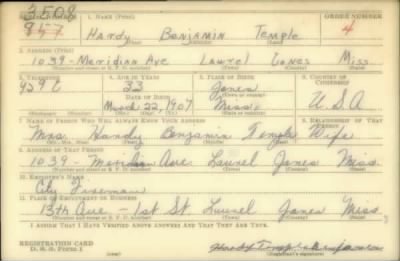 3508
SERIAL NUMBER 1. NAME (Print) ORDER NUMBER
857 Hardy Benjamin Temple 4
2. ADDRESS (Print)
1039 - Meridian Ave Laurel Jones Miss.
3. TELEPHONE 4. AGE IN YEARS 5. PLACE OF BIRTH 6. COUNTRY OF CITIZENSHIP
929 33 Jones
DATE OF BIRTH
March 22, 1907 Miss. U.S.A
7. NAME OF PERSON WHO WILL ALWAYS KNOW YOUR ADDRESS 8. RELATIONSHIP OF THAT PERSON
Mrs. Hardy Benjamin Temple Wife
9. ADDRESS OF THAT PERSON
1039 - Meridian Ave. Laurel Jones Miss.
10. EMPLOYER'S NAME
City Fireman
11. PLACE OF EMPLOYMENT OR BUSINESS
13th Ave - 1st St Laurel Jones Miss
I AFFIRM THAT I HAVE VERIFIED ABOVE ANSWERS AND THAT THEY ARE TRUE.
REGISTRATION CARD
D. S. S. Form 1
(Registrant's signature)